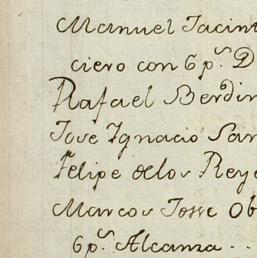 Manuel Jacint
ciero con 6 p.s D
Rafael Berdin
Jose Ygnacio San
Felipe delos Reye
Marcos Josse Ob
6 p.s Alcanza - -